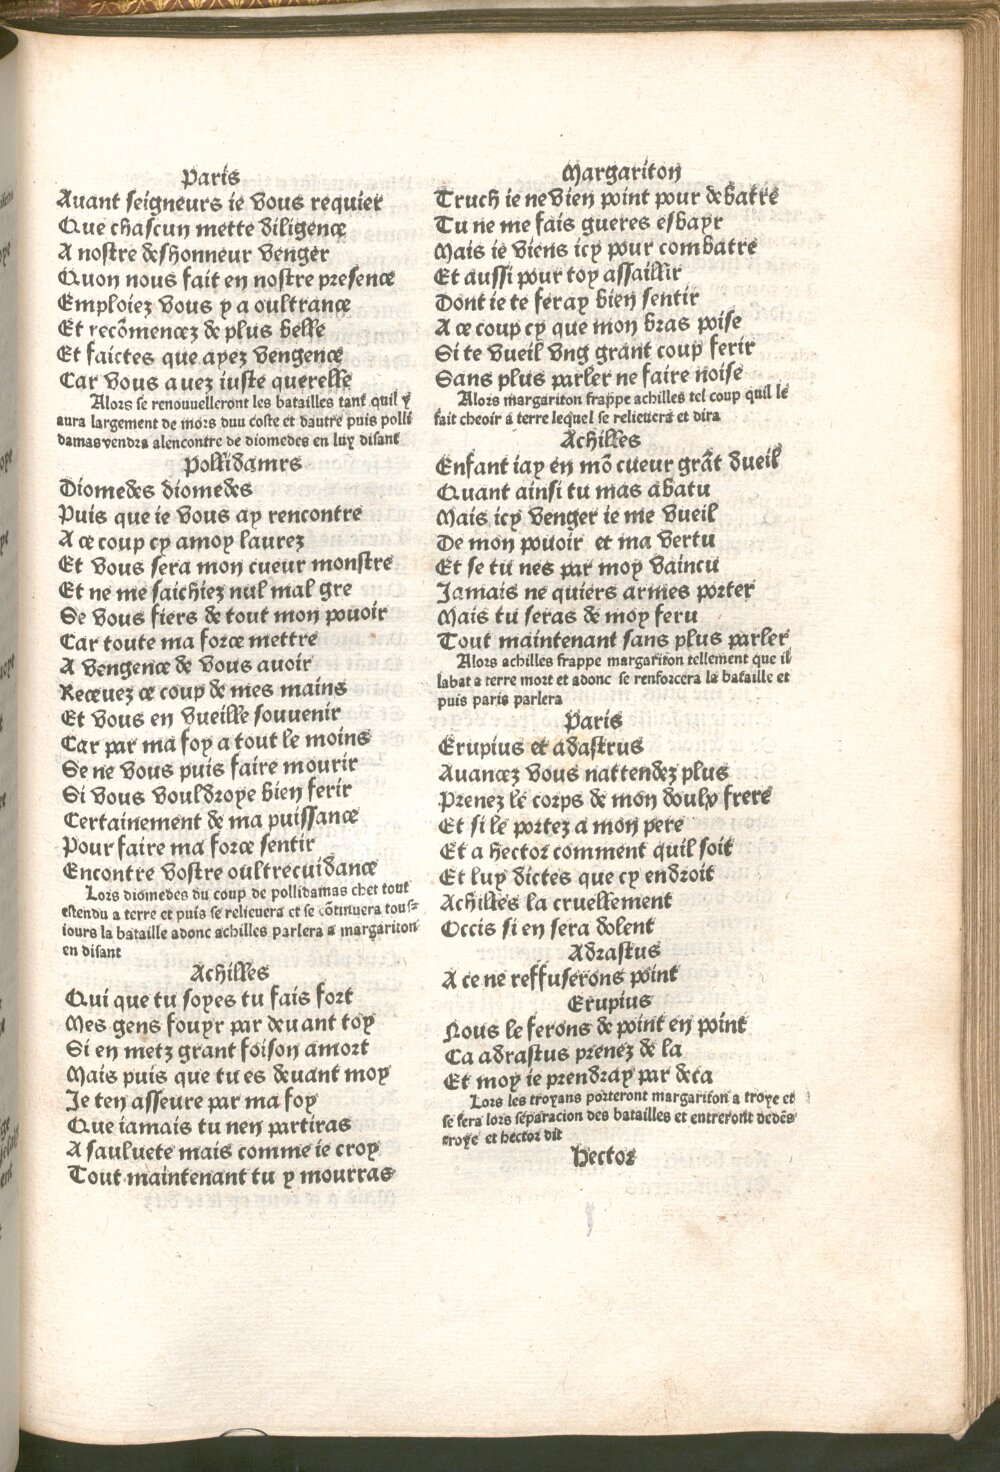 Paris
Auant seigneurs ie vous requier
Que chascun mette diligence
A nostre deshonneur venger
Quon nous fait en nostre presence
Emploiez vous y a oultrance
Et recōmencez de plus belle
Et faictes que ayez vengence
Car vous auez iuste querelle
Alors se renouuelleront les batailles tant quil y
aura largement de mors dun coste et dautre puis polli
damas vendra alencontre de diomedes en luy disant
Pollidamrs
Diomedes diomedes
Puis que ie vous ay rencontre
A ce coup cy amoy laurez
Et vous sera mon cueur monstre
Et ne me saichiez nul mal gre
Se vous fiers de tout mon pouoir
Car toute ma force mettre
A vengence de vous auoir
Receuez ce coup de mes mains
Et vous en vueille souuenir
Car par ma foy a tout le moins
Se ne vous puis faire mourir
Si vous vouldroye bien ferir
Certainement de ma puissance
Pour faire ma force sentir
Encontre vostre oultrecuidance
Lors diomedes du coup de pollidamas chet tout
estendu a terre et puis se relieuera et se cōtinuera tous=
iours la bataille adonc achilles parlera a margariton
en disant
Achilles
Qui que tu soyes tu fais fort
Mes gens fouyr par deuant toy
Si en metz grant foison amort
Mais puis que tu es deuant moy
Je ten asseure par ma foy
Que iamais tu nen partiras
A sauluete mais comme ie croy
Tout maintenant tu y mourras
Margariton
Truch ie ne vien point pour debatre
Tu ne me fais gueres esbayr
Mais ie viens icy pour combatre
Et aussi pour toy assaillir
Dont ie te feray bien sentir
A ce coup cy que mon bras poise
Si te vueil vng grant coup ferir
Sans plus parler ne faire noise
Alors margariton frappe achilles tel coup quil le
fait cheoir a terre lequel se relieuera et dira
Achilles
Enfant iay en mō cueur grāt dueil
Quant ainsi tu mas abatu
Mais icy venger ie me vueil
De mon pouoir et ma vertu
Et se tu nes par moy vaincu
Jamais ne quiers armes porter
Mais tu seras de moy feru
Tout maintenant sans plus parler
Alors achilles frappe margariton tellement que il
labat a terre mort et adonc se renforcera la bataille et
puis paris parlera
Paris
Erupius et adastrus
Auancez vous nattendez plus
Prenez le corps de mon doulx frere
Et si le portez a mon pere
Et a hector comment quil soit
Et luy dictes que cy endroit
Achilles la cruellement
Occis si en sera dolent
Adrastus
A ce ne reffuserons point
Erupius
Nous le ferons de point en point
Ca adrastus prenez de la
Et moy ie prendray par deca
Lors les troyans porteront margariton a troye et
se fera lors separacion des batailles et entreront dedēs
troye et hector dit
Hector